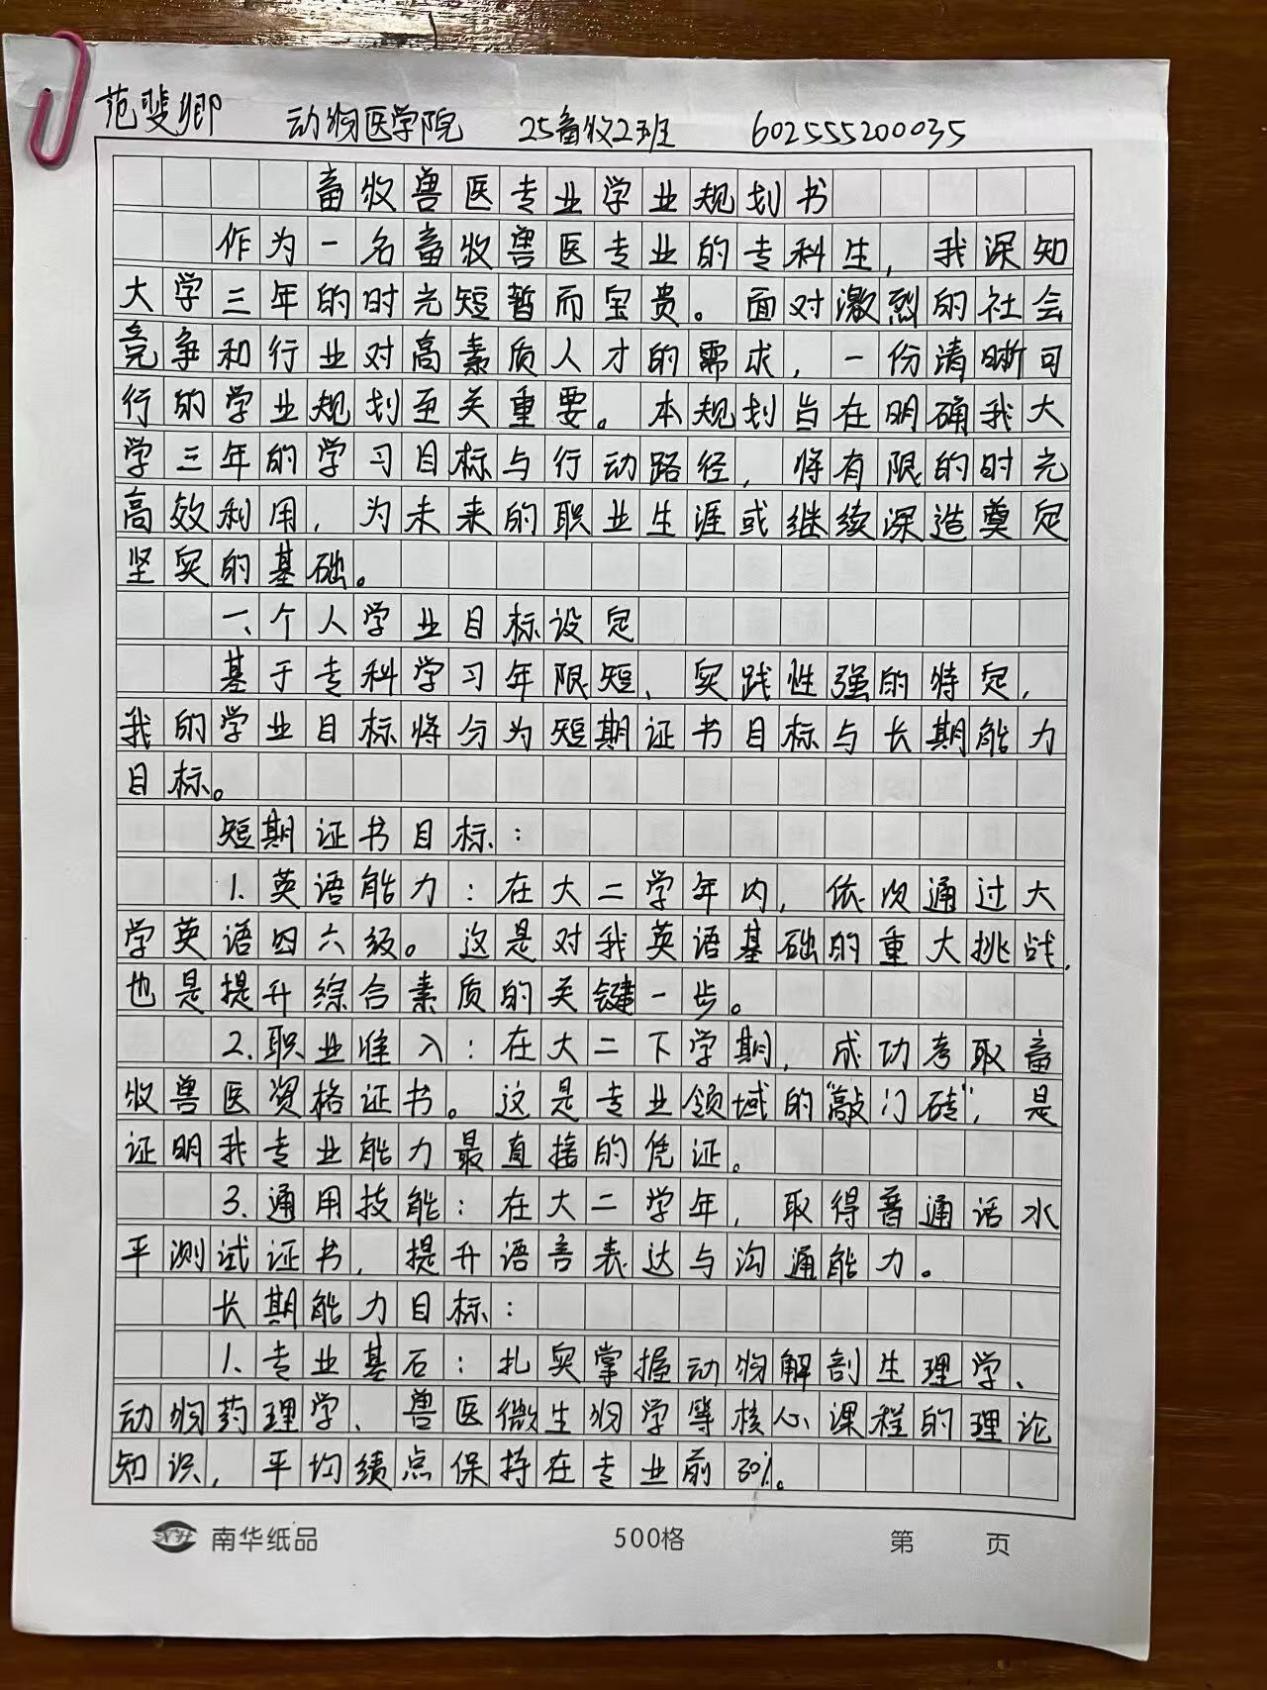 范斐卿 动物医学院 25畜牧2班 602555200035
畜牧兽医专业学业规划书
作为一名畜牧兽医专业的专科生，我深知
大学三年的时光短暂而宝贵。面对激烈的社会
竞争和行业对高素质人才的需求，一份清晰可
行的学业规划至关重要。本规划旨在明确我大
学三年的学习目标与行动路径，将有限的时光
高效利用，为未来的职业生涯或继续深造奠定
坚实的基础。
一、个人学业目标设定
基于专科学习年限短、实践性强的特定，
我的学业目标将分为短期证书目标与长期能力
目标。
短期证书目标：
1.英语能力：在大二学年内，依次通过大
学英语四六级。这是对我英语基础的重大挑战，
也是提升综合素质的关键一步。
2.职业准入：在大二下学期，成功考取畜
牧兽医资格证书。这是专业领域的“敲门砖”，是
证明我专业能力最直接的凭证。
3.通用技能：在大二学年，取得普通话水
平测试证书，提升语言表达与沟通能力。
长期能力目标：
1.专业基石：扎实掌握动物解剖生理学、
动物药理学、兽医微生物学等核心课程的理论
知识，平均绩点保持在专业前30%。
南华纸品 500格 第 页